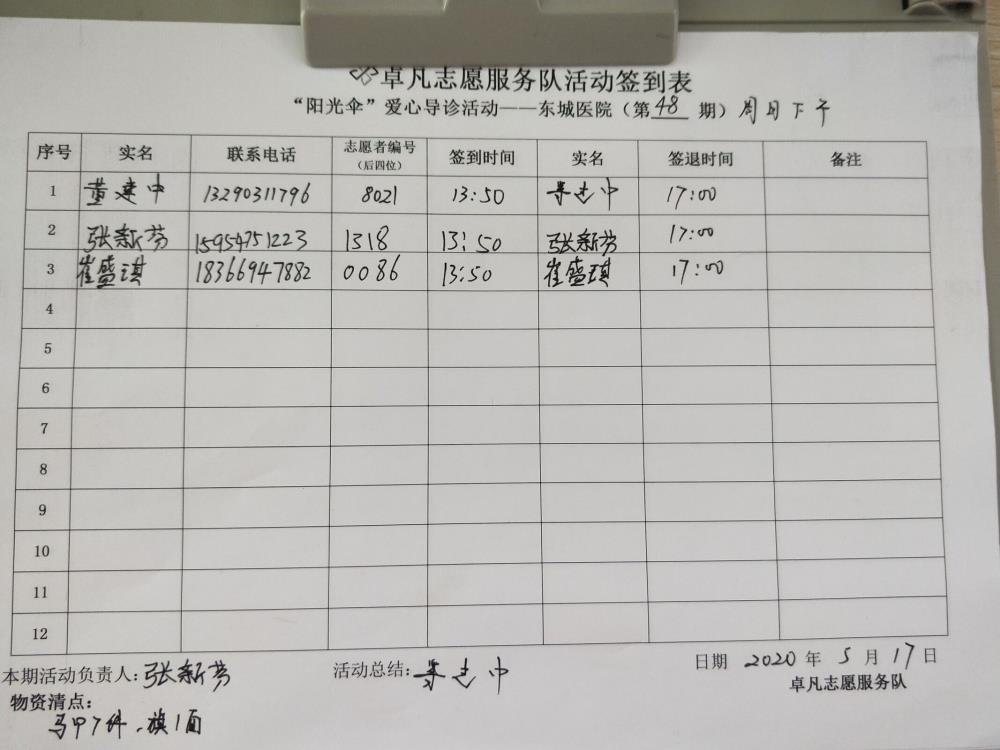 卓凡志愿服务队活动签到表
“阳光伞”爱心导诊活动——东城医院（第48期）周日下午
序号 实名 联系电话 志愿者编号（后四位） 签到时间 实名 签退时间 备注
1 董建中 13290311796 8021 13:50 董建中 17:00
2 张新芬 15954751223 1318 13:50 张新芬 17:00
3 崔盛琪 18366947882 0086 13:50 崔盛琪 17:00
4
5
6
7
8
9
10
11
12
本期活动负责人：张新芬 活动总结：董建中 日期 2020年5月17日
卓凡志愿服务队
物资清点：
马甲7件、旗1面